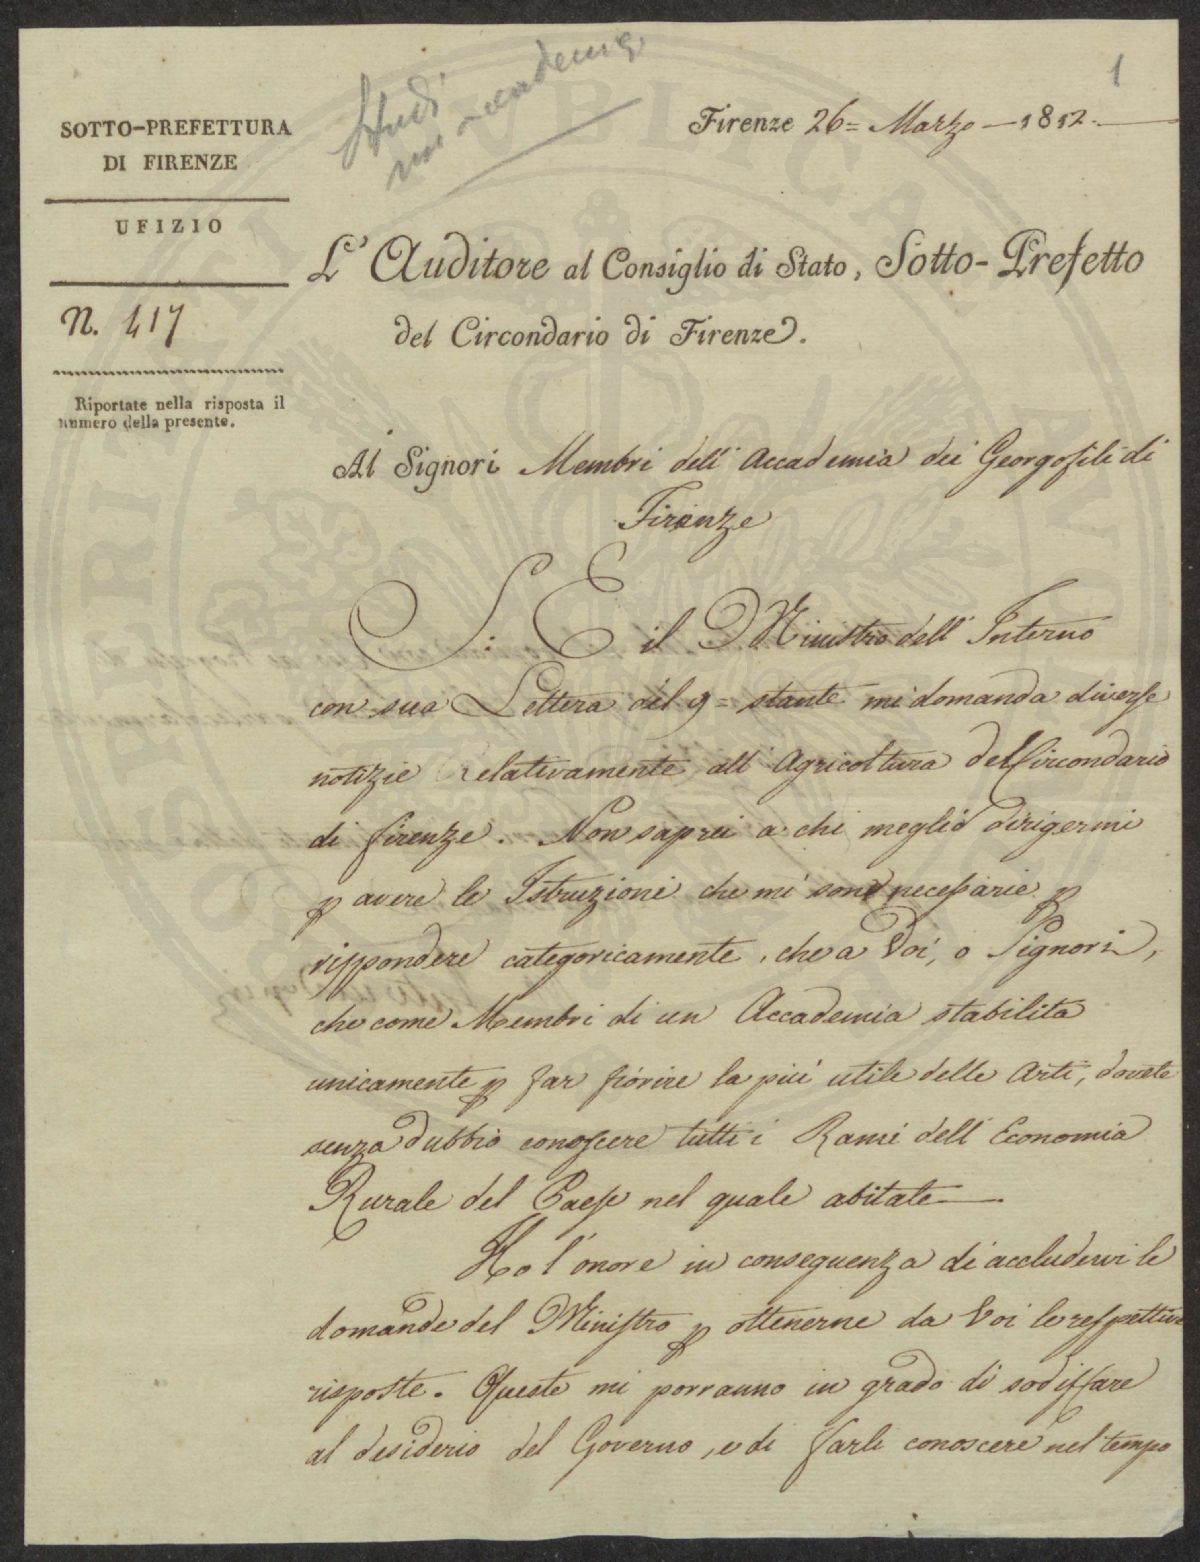 1
Studi
SOTTO-PREFETTURA
DI FIRENZE
UFIZIO
N. 417
Riportate nella risposta il
numero della presente.
Firenze 26= Marzo 1812.
L'Auditore al Consiglio di Stato, Sotto-Prefetto
del Circondario di Firenze.
Al Signori Membri dell' Accademia dei Georgofili di
Firenze
S. E il Ministro dell' Interno
con sua Lettera del 9= stante mi domanda diverse
notizie Relativamente all' Agricoltura del Circondario
di firenze. Non saprei a chi meglio dirigermi
p avere le Istruzioni che mi sono necessarie p
rispondere categoricamente, che a Voi, o Signori,
che come Membri di un Accademia stabilita
unicamente p far fiorire la piu utile delle Arti, dovete
senza dubbio conoscere tutti i Rami dell' Economia
Rurale del Paese nel quale abitate
Ho l'onore in conseguenza di accludervi le
domande del Ministro p ottenerne da Voi le respettive
risposte. Queste mi porranno in grado di sodisfare
al desiderio del Governo, e di farli conoscere nel tempo